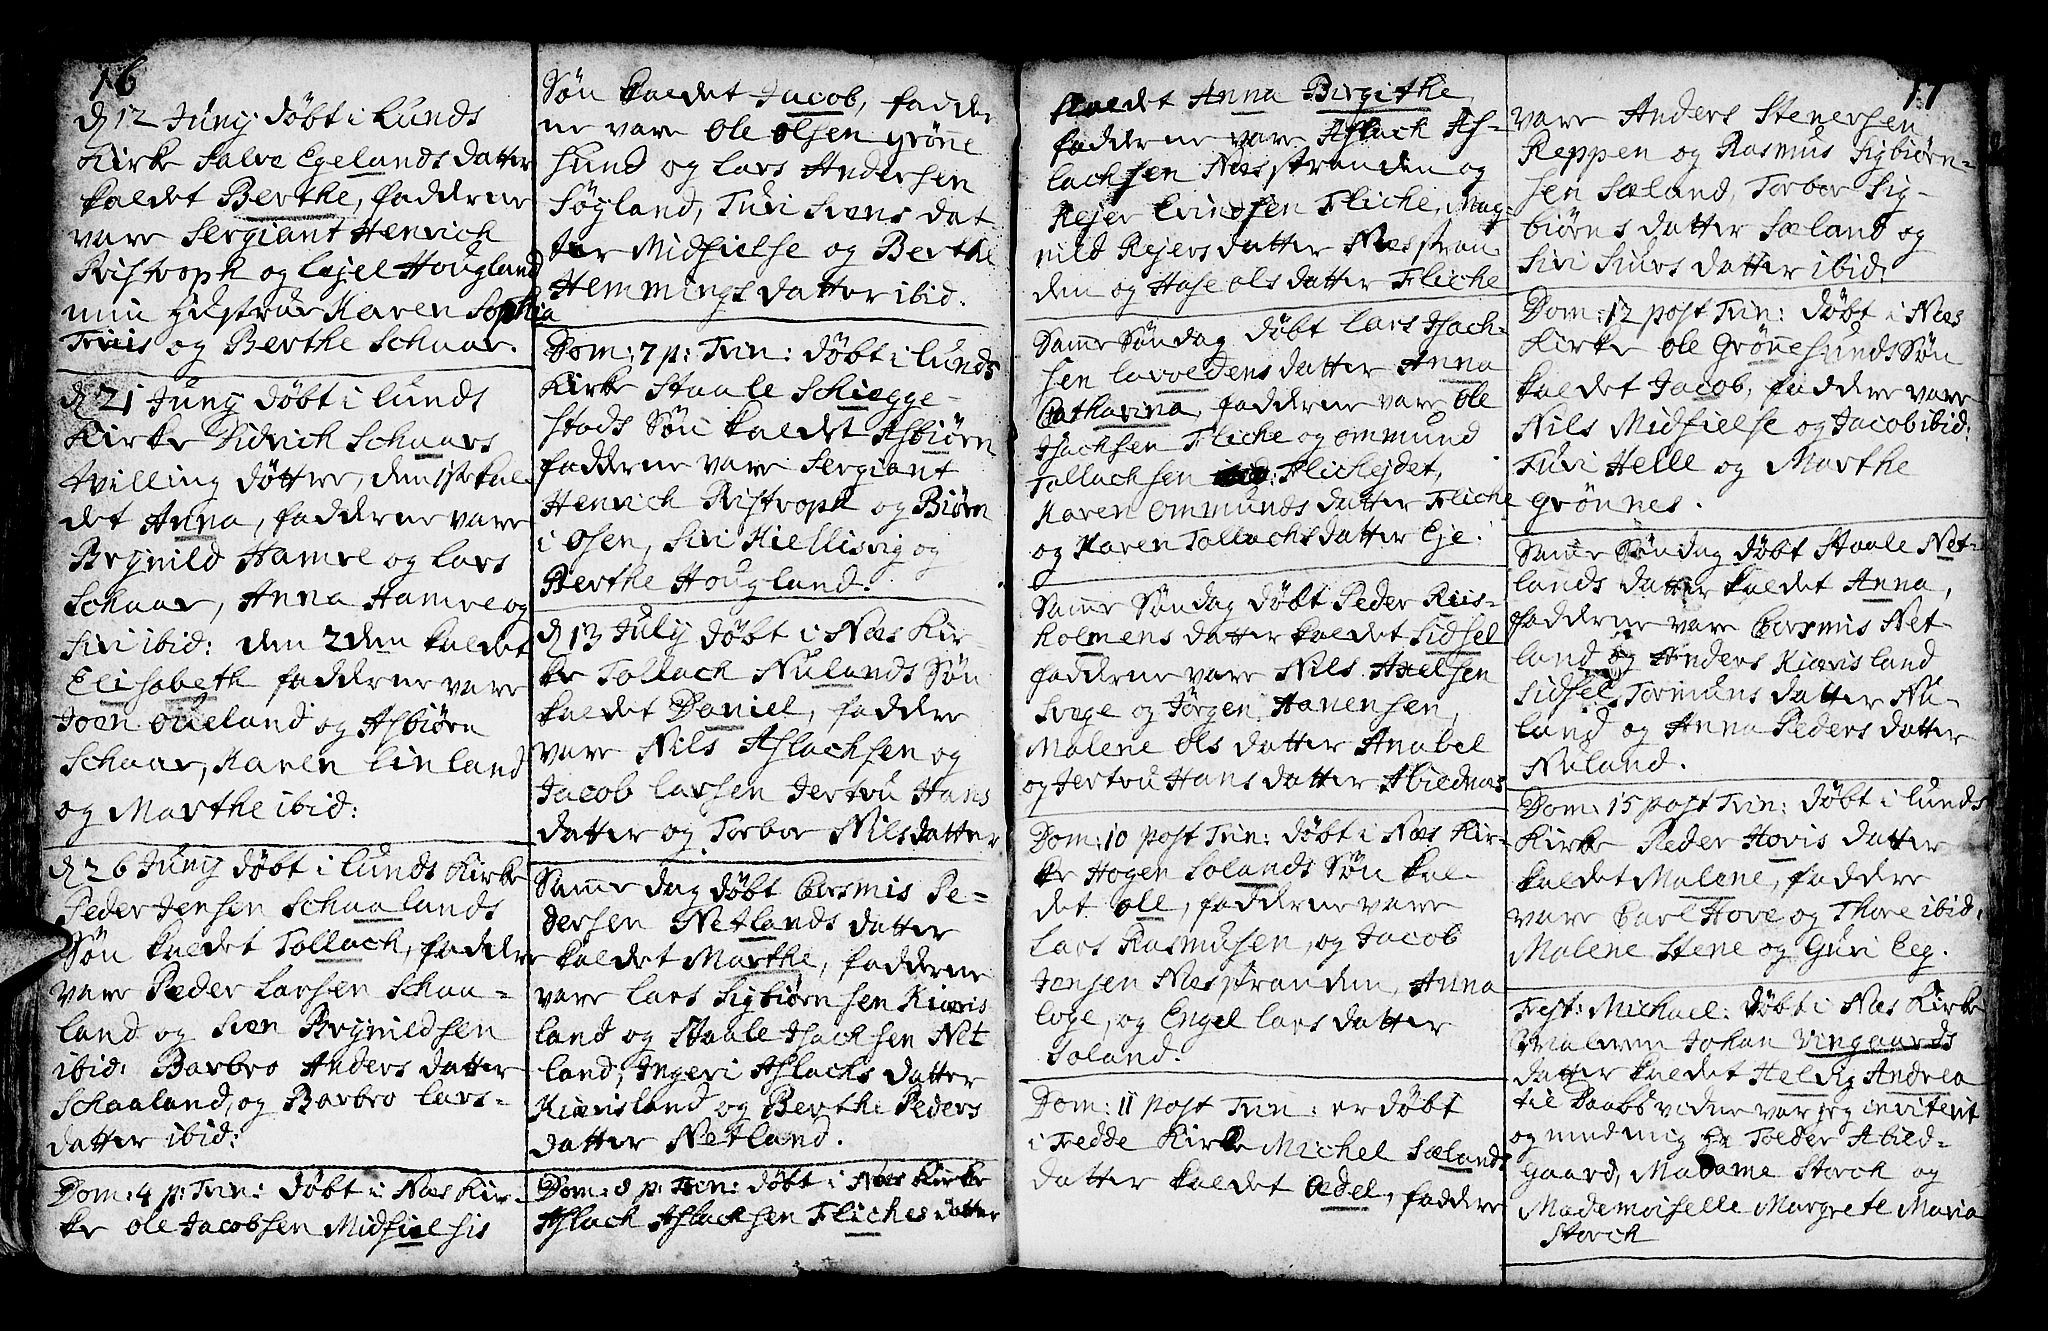 16
d 12 Junij døbt i Lunds
Kirke Salve Egelands datter
kaldet Berthe, faddrene
vare Sergiant Henrich
Ristroph og Ejel Hougland
min Hustrue Karen Sophia
Friis og Berthe Schaar.
d 21 Junij døbt i Lunds
Kirke Didrich Schaars
tvilling døttre, den 1ste kal-
det Anna, fadderne vare
Brynild Hamre og Lars
Schaar, Anna Hamre og
Siri ibid: den 2den kaldet
Elisabeth fadderne vare
Joen Oueland og Asbiørn
Schaar, Karen Linland
og Marthe ibid:
d 26 Junij døbt i Lunds Kirke
Peder Jensen Schaalands
Søn kaldet Tollach, faddre
vare Peder Larsen Schaa-
land og Sven Brynildsen
ibid: Barbro Anders datter
Schaaland, og Barbro Lars-
datter ibid:
Dom: 4 p: Trin: døbt i Næs Kir-
ke Ole Jacobsen Midsielsis
Søn kaldet Jacob, fadde
ne vare Ole Olsen Grøne
sund og Lars Andersen
Søyland, Turi Svens dat
ter Midsielse og Berthe
Hemmings datter ibid.
Dom: 7 p: Trin: døbt i Lunds
Kirke Staale Schiegge-
stads Søn kaldet Asbiørn
fadderne vare Sergiant
Henrich Ristroph og Biørn
i Osen, Siri Kiellisvig og
Berthe Hougland.
d 13 Julij døbt i Næs Kir-
ke Tollach Nulands Søn
kaldet Daniel, faddre
vare Nils Aslachsen og
Jacob Larsen Jertru Hans
datter og Torbor Nilsdatter
Samme dag døbt Cersmis Pe-
dersen Netlands datter
kaldet Marthe, fadderne
vare Lars Sigbiørnsen Kiøris
land og Staale Isachsen Net
land, Ingeri Aslachs datter
Kiørisland og Berthe Peders
datter Netland.
Dom: 8 p: Trin: døbt i Næs Kirke
Aslach Aslachsen Fliches datter
kaldet Anna Birgithe
fadderne vare Aslach As-
lachsen Næsstranden og
Rejer Evindsen Fliche, Mag-
nild Rejers datter Næsstran
den og Hase Ols datter Fliche
Samme Søndag døbt Lars Isach-
sen Lavvedens datter Anna
Catharina, fadderne vare Ole
Isachsen Fliche og Ommund
Tollachsen Flichejdet,
Karen Ommunds datter Fliche
og Karen Tollachsdatter Eje.
Samme Søndag døbt Peder Riis-
holmens datter kaldet Sidsel
fadderne vare Nils Axelsen
Svege og Jørgen Hanensen,
Malene Ols datter Anabel
og Jertru Hans datter Abiednæs
Dom: 10 post Trin: døbt i Næs Kir-
ke Hogen Solands Søn kal-
det Ole, fadderne vare
Lars Rasmusen, og Jacob
Jensen Næsstranden, Anna
Loge, og Engel Lars datter
Soland.
Dom: 11 post Trin: er døbt
i Fedde Kirke Michel Sælands
datter kaldet Ædel, faddre
17
vare Anders Stenersen
Reppen og Rasmus Sigbiørn-
sen Sæland, Torbor Sig-
biørns datter Sæland og
Siri Siurs datter ibid:
Dom: 12 post Trin: døbt i Næs
Kirke Ole Grønnesunds Søn
kaldet Jacob, faddre vare
Nils Midsielse og Jacob ibid:
Turi Helle og Marthe
Grønnes.
Samme Søndag døbt Staale Net-
lands datter kaldet Anna,
fadderne vare Cersmis Net
land og Anders Kiørisland
Sidsel Tormuns datter Nu-
land og Anna Peders datter
Nuland.
Dom: 15 post Trin: døbt i Lunds
Kirke Peder Hovis datter
kaldet Malene, faddre
vare Carl Hove og Thore ibid:
Malene Stene og Guri Eeg.
Fest: Michael: døbt i Næs Kirke
Maleren Johan Vingaards
datter kaldet Helvig Andrea
til Daabs vidne var jeg inviterit
og med mig Hr Tolder Abild-
gaard, Madame Storch og
Mademoiselle Margrete Maria
Storch